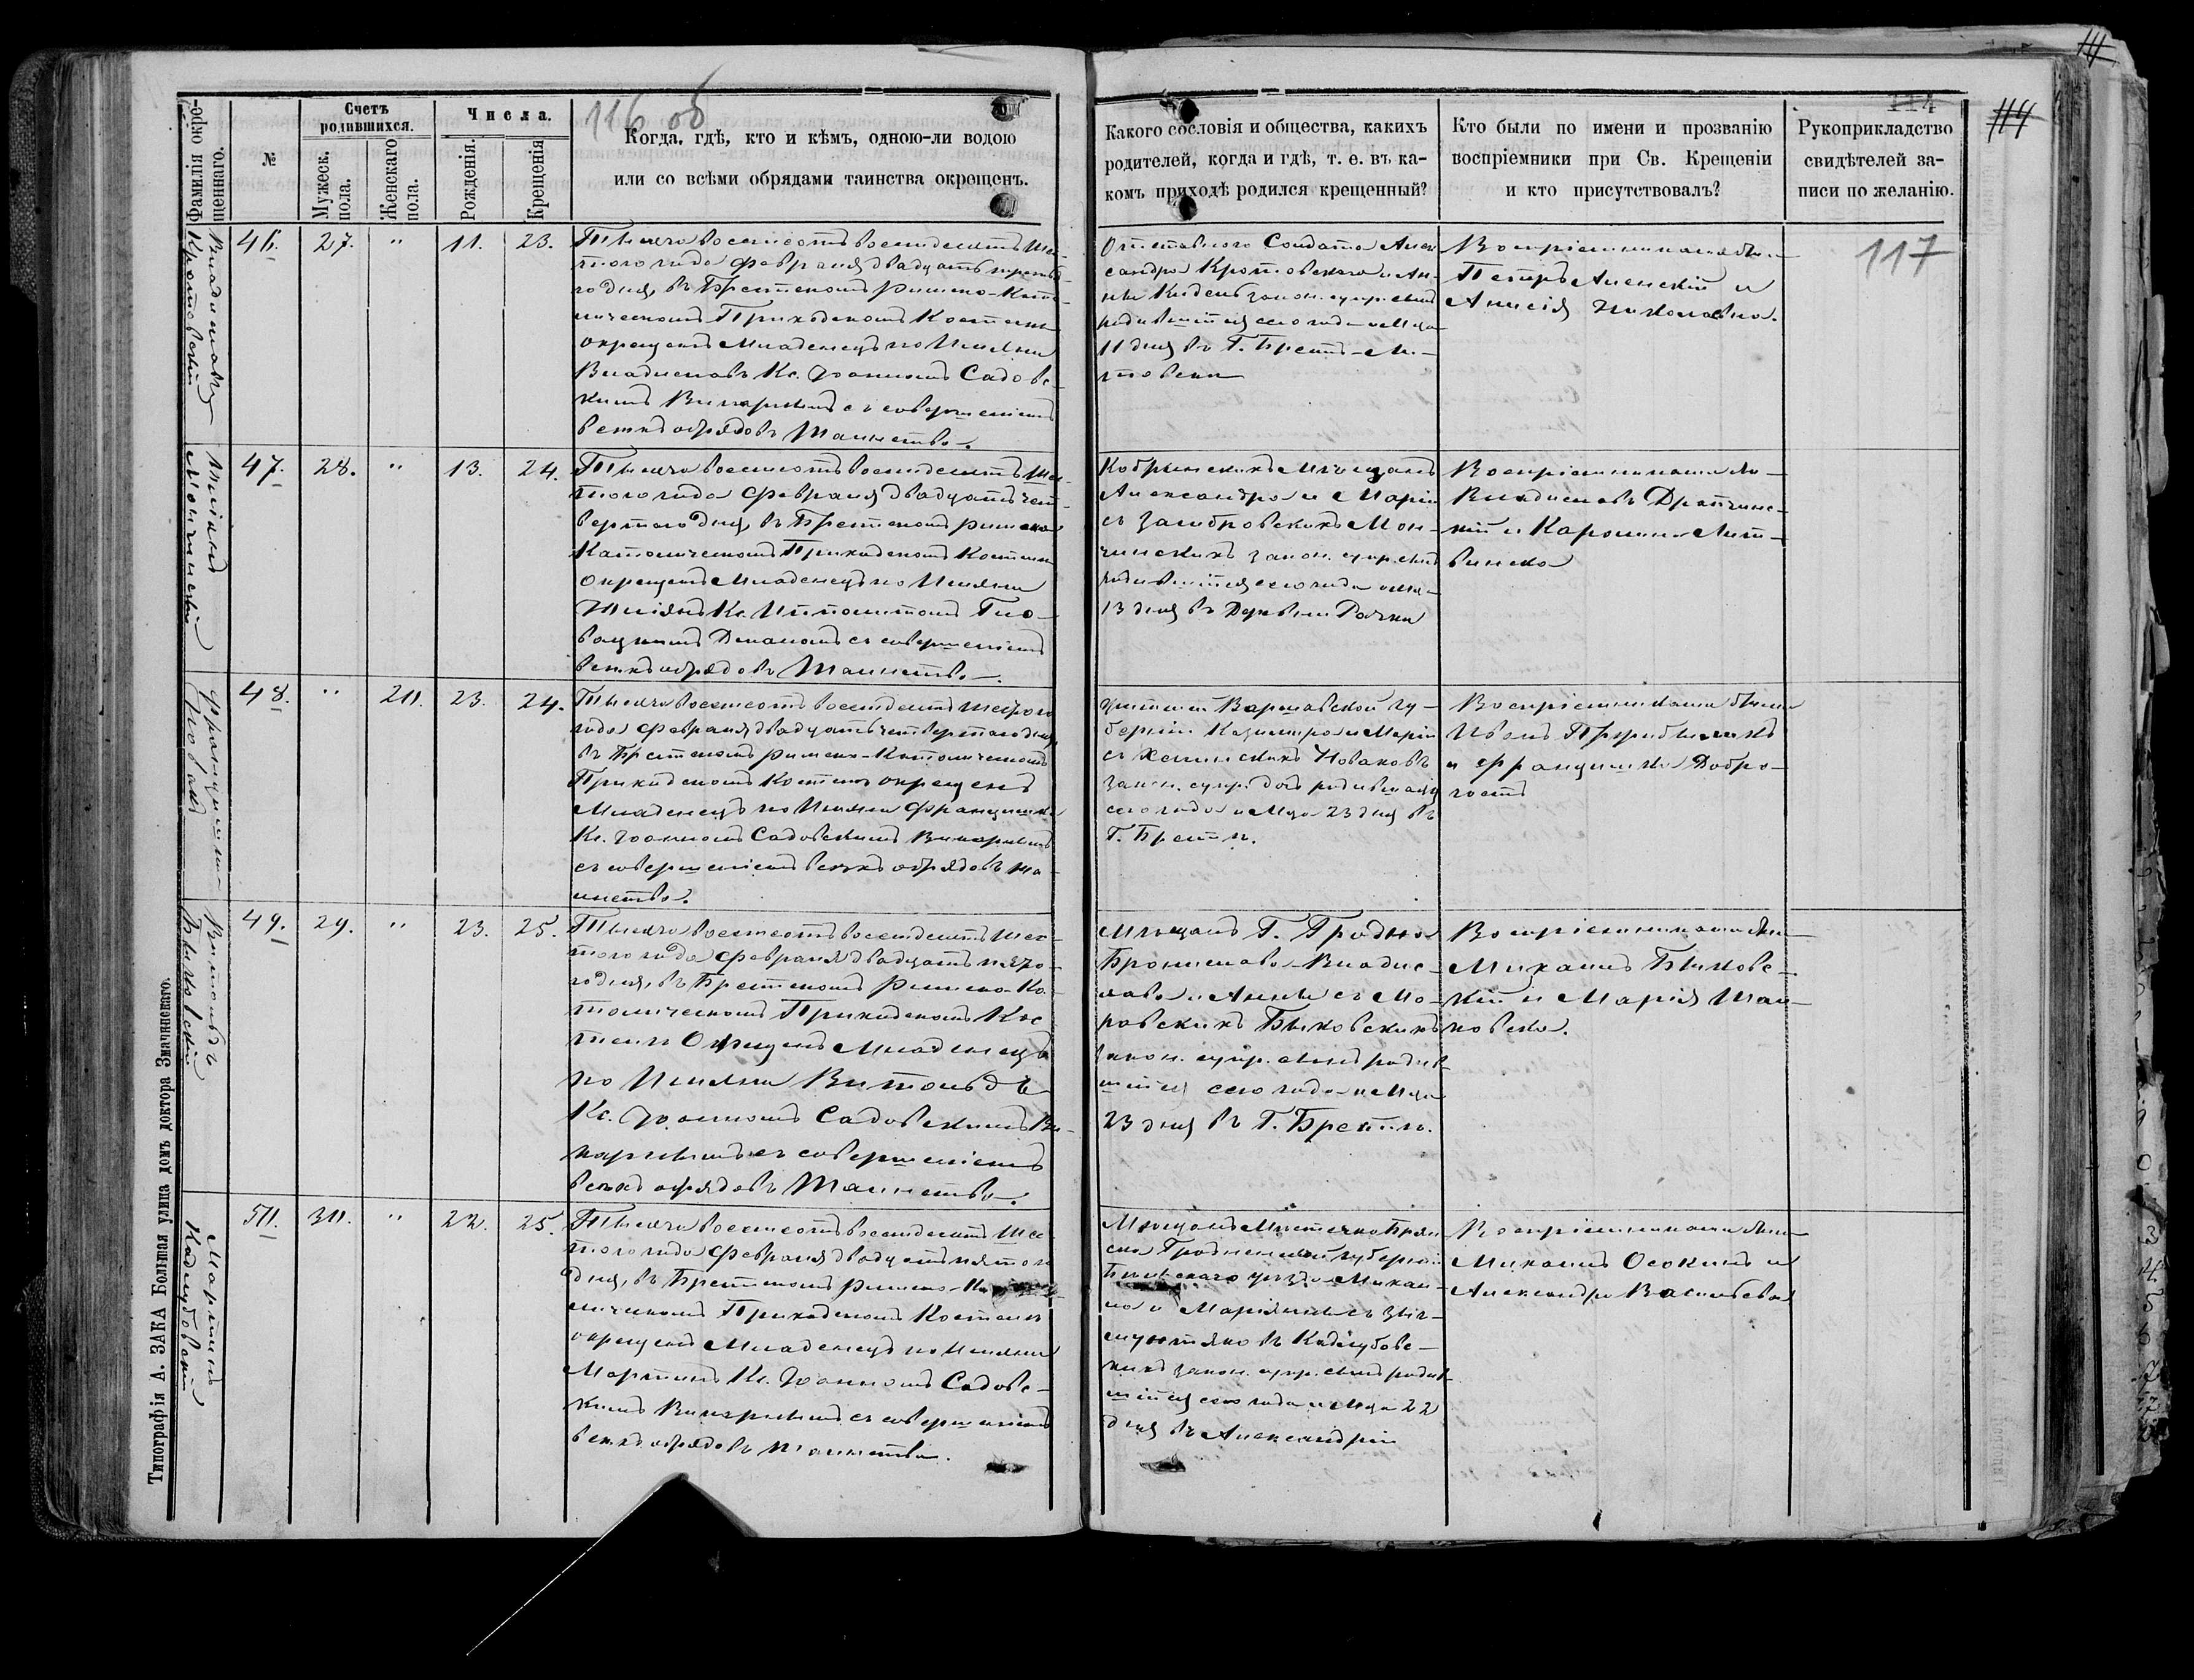 116 об
Фамилія окре-
щеннаго.
№
Счетъ
родившихся.
Мужеск.
пола.
Женскаго
пола.
Числа.
Рожденія.
Крещенія
Когда, гдѣ, кто и кѣмъ, одною-ли водою
или со всѣми обрядами таинства окрещенъ.
Владиславъ
Кротовскій
46. 27. " 11. 23.
Тысяча восемсотъ восемдесятъ шес-
того года Февраля двадцать третья-
го дня, въ Брестскомъ Римско-Като-
лическомъ Приходскомъ Костелѣ
окрещенъ Младенецъ по Имяни
Владиславъ Кс. Іоанномъ Садовс-
кимъ Викарнымъ съ совершеніемъ
всѣхъ обрядовъ Таинства.
Мончинскій
47. 28. " 13. 24.
Тысяча восемсотъ восемдесятъ шес-
того года Февраля двадцать чет-
вертого дня, въ Брестскомъ Римско
Католическомъ Приходскомъ Костелѣ
окрещенъ Младенецъ по Имяни
Кс. Ипполитомъ Гло-
вацкимъ Деканомъ съ совершеніемъ
всѣхъ обрядовъ Таинства.
Франциишка
Новакъ
48. " 20. 23. 24.
Тысяча восемсотъ восемдесятъ шестого
года Февраля двадцать четвертого дня
въ Брестскомъ Римско-Католическомъ
Приходскомъ Костелѣ окрещенъ
Младенецъ по Имяни Францишка
Кс. Іоанномъ Садовскимъ Викарнымъ
съ совершеніемъ всѣхъ обрядовъ та-
инства.
Витольдъ
Быковскій
49. 29. " 23. 25.
Тысяча восемсотъ восемдесятъ шес-
того года Февраля двадцать пято-
го дня, въ Брестскомъ Римско-Ка-
толическомъ Приходскомъ Кос
телѣ Окрещенъ Младенецъ
по Имяни Витольдъ
Кс. Іоанномъ Садовскимъ Ви-
карнымъ съ совершеніемъ
всѣхъ обрядовъ Таинства.
Мартинъ
Кадлубовскій
50. 30. " 22. 25.
Тысяча восемсотъ восемдесятъ шес-
того года Февраля двадцать пятого
дня, въ Брестскомъ Римско-
лическомъ Приходскомъ Костелѣ
окрещенъ Младенецъ по Имяни
Мартинъ Кс. Іоанномъ Садовс-
кимъ Викарнымъ съ совершеніемъ
всѣхъ обрядовъ таинства.
Типографія А. ЗАКА Большая улица домъ доктора Значинскаго.
114
Какого сословія и общества, какихъ
родителей, когда и гдѣ, т. е. въ ка-
комъ приходѣ родился крещенный?
Кто были по имени и прозванію
воспріемники при Св. Крещеніи
и кто присутствовалъ?
Рукоприкладство
свидѣтелей за-
писи по желанію.
117
Отставного Солдата Алек
сандра Кротовскаго и Ан-
ны закон. супр. сынъ
родившійся сего года и М-ца
11 дня въ Г. Брестъ-Ли-
товскѣ
Воспріемниками были
Петръ Аленскій и
Анисія Николаевна.
Кобринскихъ Мѣщанъ
Александра и Маріи
съ Мон-
чинскихъ закон. супр. сынъ
родившійся сего года и м-ца
13 дня въ Деревни Рачки
Воспріемниками бы-
Владиславъ
и Каролина Лит-
винско
Варшавской гу-
берніи Казимира и Маріи
съ Новаковъ
закон. супр. дочь родившаяся
сего года и М-ца 23 дня въ
Г. Брестѣ.
Воспріемниками были
Иванъ
и Францишка Добро-
гостъ
Мѣщанъ Г. Гродна
Бронислава-Владис-
лава и Анны съ Мо-
ровскихъ Быковскихъ
закон. супр. сынъ родив-
шійся сего года и М-ца
23 дня въ Г. Брестѣ.
Воспріемниками бы-
Михаилъ Быковс-
кій и Марія
ковска.
Мѣщанъ Мѣстечка Бран
ска Гродненской губерніи
Бѣльскаго уѣзда Михаи-
ла и Маріянны съ
въ Кадлубовс-
кихъ закон. супр. сынъ родив-
шійся сего года и М-ца 22
дня въ Александріи
Воспріемниками бы-
Михаилъ Осокинъ и
Александра Васильева